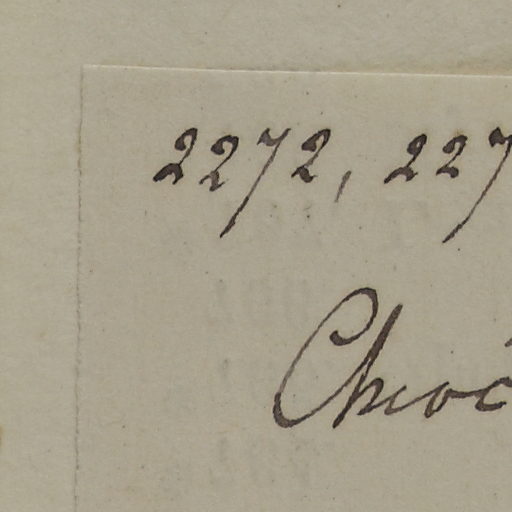 2272, 227
Chioć